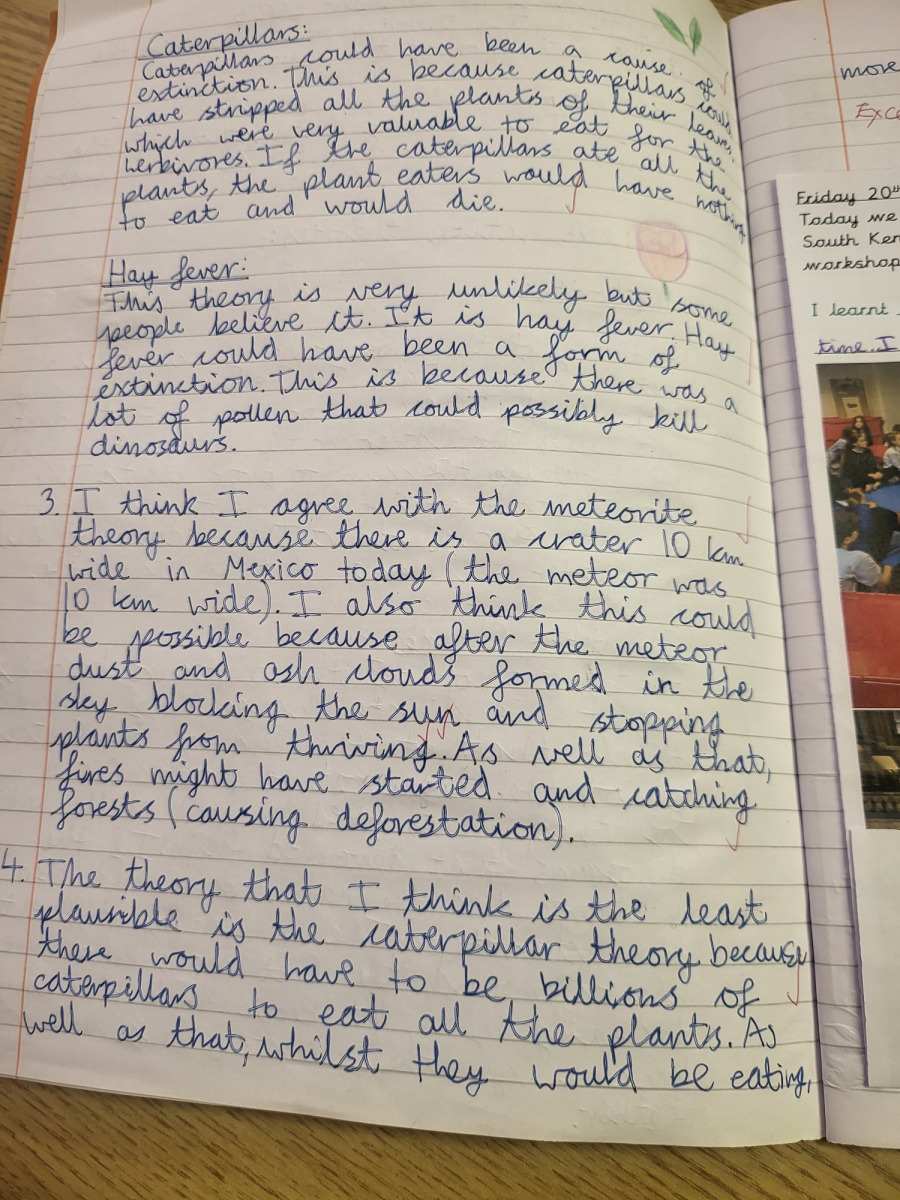 Caterpillars:
Caterpillars could have been a cause of
extinction. This is because caterpillars could
have stripped all the plants of their leaves,
which were very valuable to eat for the
herbivores. If the caterpillars ate all the
plants, the plant eaters would have nothing
to eat and would die.
Hay fever:
This theory is very unlikely but some
people believe it. It is hay fever. Hay
fever could have been a form of
extinction. This is because there was a
lot of pollen that could possibly kill
dinosaurs.
3. I think I agree with the meteorite
theory because there is a crater 10 km
wide in Mexico today (the meteor was
10 km wide). I also think this could
be possible because after the meteor
dust and ash clouds formed in the
sky blocking the sun and stopping
plants from thriving. As well as that,
fires might have started and catching
forests (causing deforestation).
4. The theory that I think is the least
plausible is the caterpillar theory because
there would have to be billions of
caterpillars to eat all the plants. As
well as that, whilst they would be eating,
more
Friday 20th
Today we
South Ken
workshop
I learnt
time. I